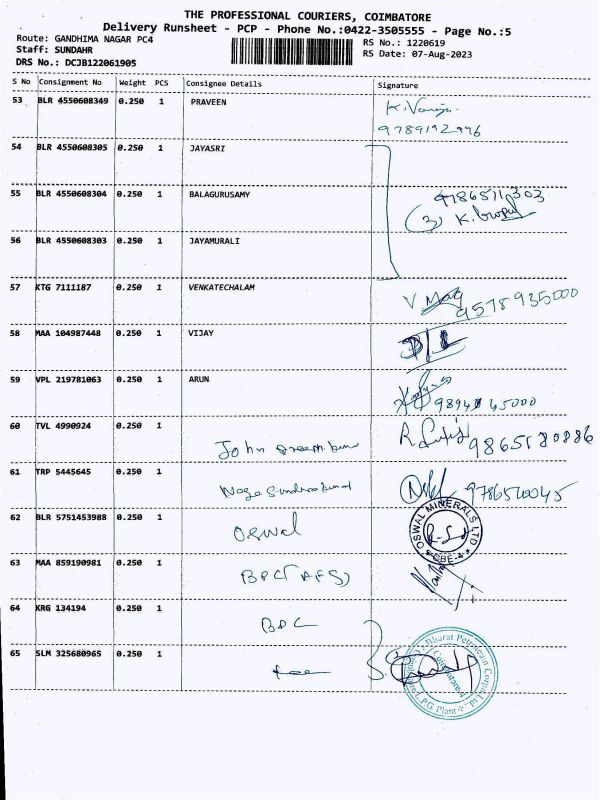 THE PROFESSIONAL COURIERS, COIMBATORE
Delivery Runsheet - PCP - Phone No.:0422-3505555 - Page No.:5
Route: GANDHIMA NAGAR PC4
RS No.: 1220619
Staff: SUNDAHR
RS Date: 07-Aug-2023
DRS No.: DCJB122061905
S No Consignment No Weight PCS Consignee Details Signature
53 BLR 4550608349 0.250 1 PRAVEEN
9789192996
54 BLR 4550608305 0.250 1 JAYASRI
55 BLR 4550608304 0.250 1 BALAGURUSAMY
(3)
56 BLR 4550608303 0.250 1 JAYAMURALI
57 KTG 7111187 0.250 1 VENKATECHALAM
9578935000
58 MAA 104987448 0.250 1 VIJAY
59 VPL 219781063 0.250 1 ARUN
60 TVL 4990924 0.250 1 John
61 TRP 5445645 0.250 1
62 BLR 5751453988 0.250 1 Oswal
OSWAL MINERALS LTD
CBE-4
63 MAA 859190981 0.250 1 BPC (AFS)
64 KRG 134194 0.250 1 BPC
65 SLM 325680965 0.250 1
Bharat Petroleum
Coimbatore
L.P.G. Plant